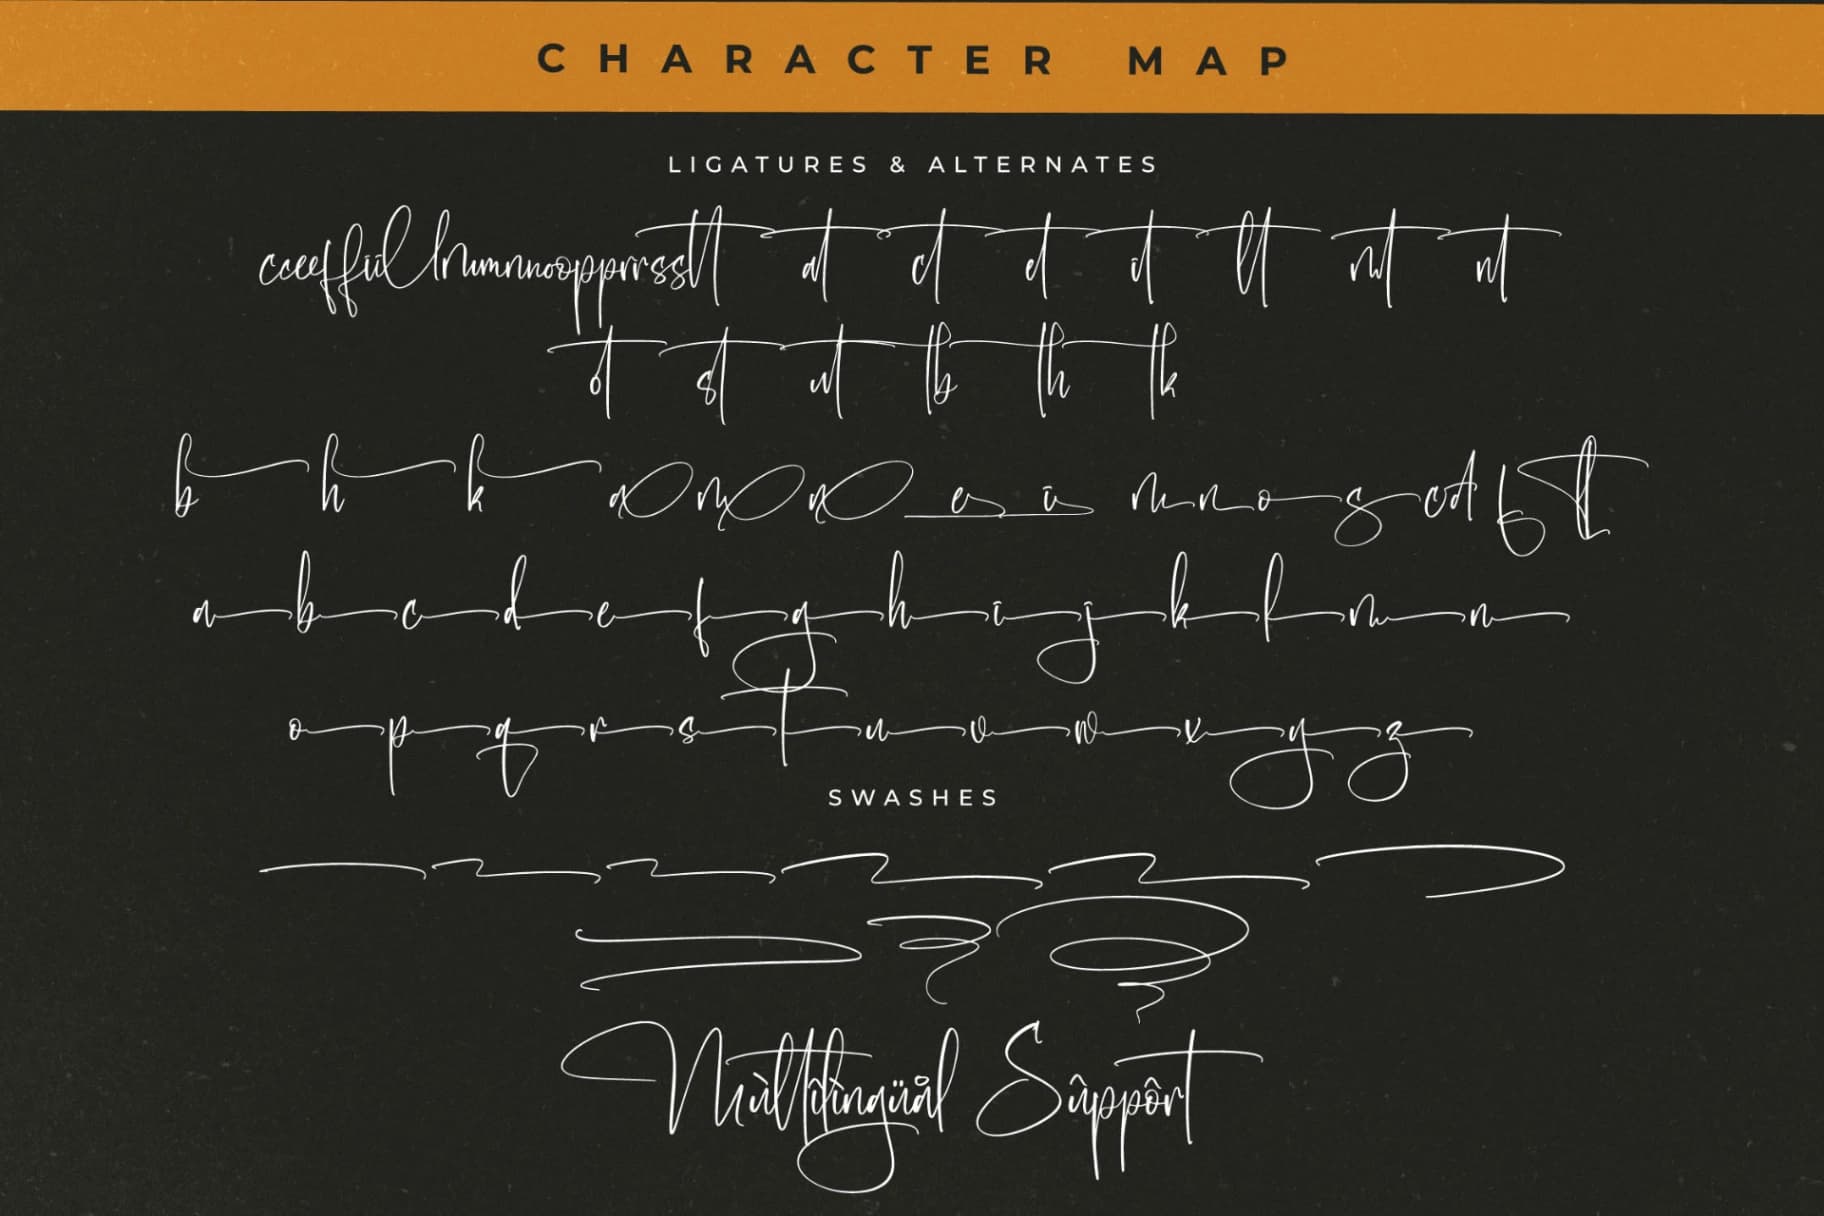 CHARACTER MAP
LIGATURES & ALTERNATES
cceeffiill lnummnnooopprrsstt at ct et it lt mt nt
ot st ut tb th tk
b h k a m n e i m n o s cd f tt
a b c d e f g h i j k l m n
o p q r s t u v w x y z
SWASHES
Mùltîlìngüål Sûppôrt